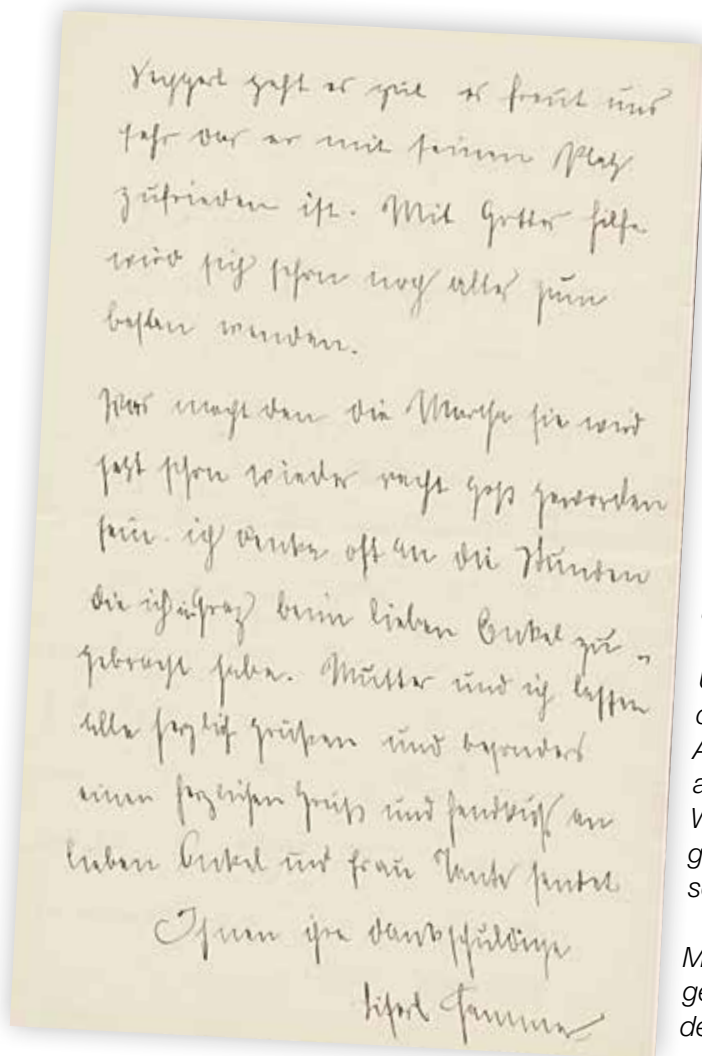 geht es gut es freut uns
sehr das er mit seinen Platz
zufrieden ist. Mit Gottes hilfe
wird sich schon noch alles zum
besten wenden.
Was macht den die Martha sie wird
jetzt schon wieder recht groß geworden
sein. ich denke oft an die Stunden
die ich in Graz beim lieben Onkel zu„
gebracht habe. Mutter und ich lassen
alle herzlich grüßen und besonders
einen herzlichen Gruß und Handkuß an
lieben Onkel und Frau Tante sendet
Ihnen ihre dankschuldige